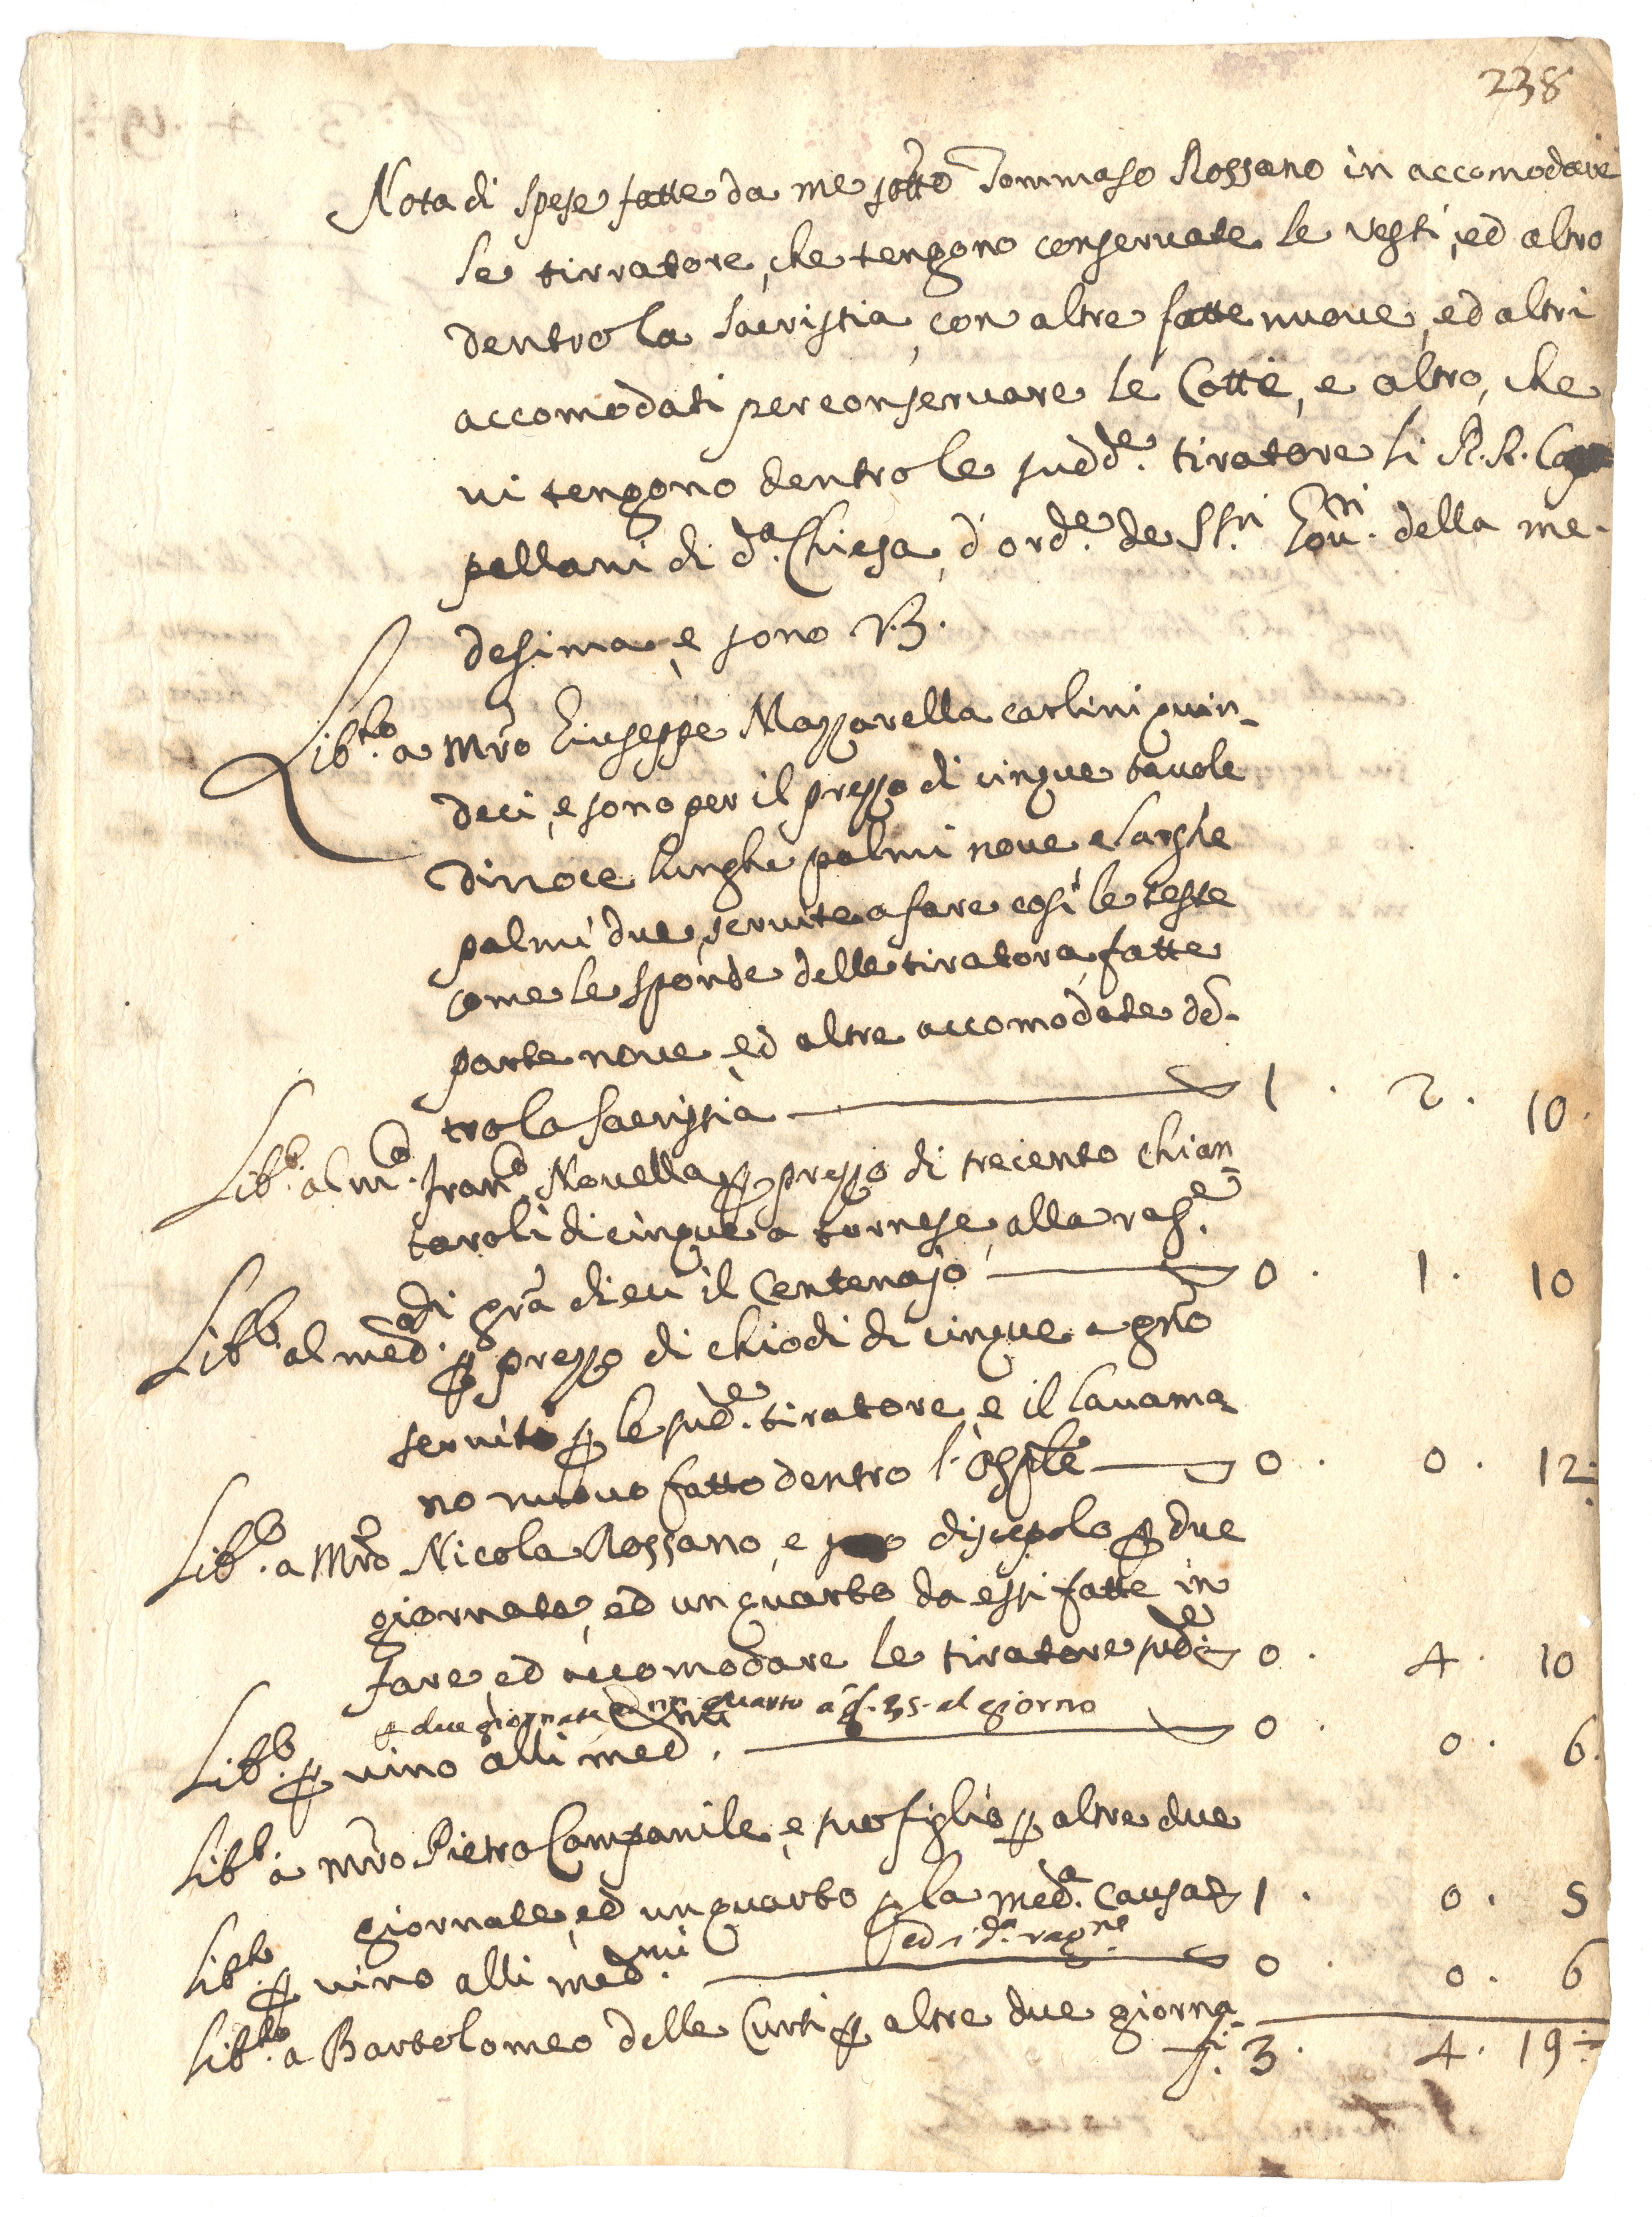 238
Nota di spese fatte da me sotto Tommaso Rossano in accomodare
le tirratore, che tengono conseruate le vesti, ed altro
dentro la sacristia, con altre fatte nuoue, ed altri
accomodati per conseruare le Cotte, e altro, che
ui tengono dentro le sudd.e tiratore li R.R. Cap
pellani di d.a Chiesa, d'ord.e de SS.ri Gou.ri della me-
desima, e sono V3.
Lib.to a Mro Giuseppe Mazzarella carlini quin-
deci, e sono per il prezzo di cinque tauole
di noce lunghe palmi noue, e larghe
palmi due, seruite a fare così le teste
come le sponde delle tiratora, fatte
parte noue, ed altre accomodate den-
tro la sacristia 1 . 2 . 10 .
Lib.to al m.co Fran.co Nouella per prezzo di trecento chian-
taroli di cinque a tornese, alla rag.e
di gra dieci il Centenajo 0 . 1 . 10
Lib.to al med.o per prezzo di chiodi di cinque a grno
seruiti per le sud.e tiratore, e il lauama-
no nuouo fatto dentro l'Osp.le 0 . 0 . 12 :
Lib.to a Mro Nicola Rossano, e suo discepolo per due
giornate, ed un quarto da essi fatte in
fare, ed accomodare le tiratore sud.e 0 . 4 . 10
per due giornate ed un quarto a g. 35. al giorno
Lib.to per uino alli med.mi 0 . 0 . 6 .
Lib.to a Mro Pietro Campanile, e suo figlio per altre due
giornate, ed un quarto per la med.a causa 1 . 0 . 5
ed a d.a rag.ne
Lib.to per uino alli med.mi 0 . 0 . 6
Lib.to a Bartolomeo delle Curti per altre due giorna-
3 . 4 . 19 :